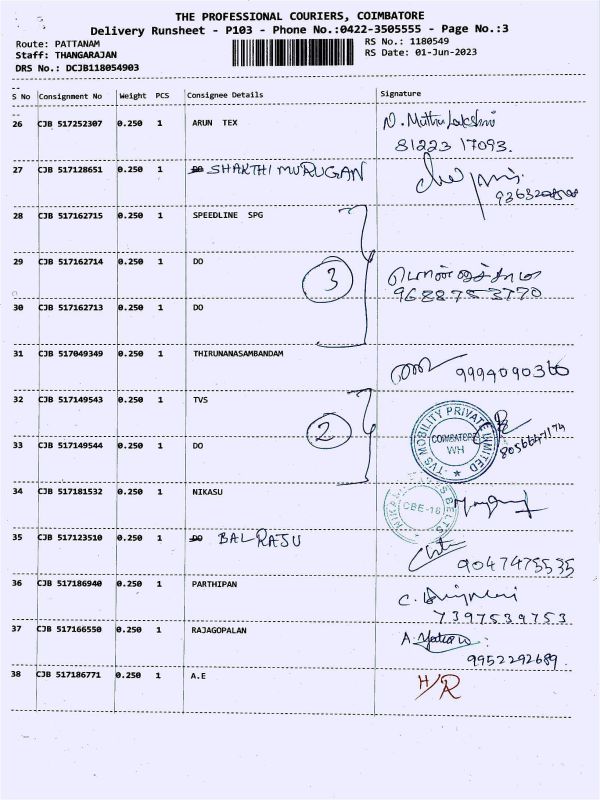 THE PROFESSIONAL COURIERS, COIMBATORE
Delivery Runsheet - P103 - Phone No.:0422-3505555 - Page No.:3
Route: PATTANAM RS No.: 1180549
Staff: THANGARAJAN RS Date: 01-Jun-2023
DRS No.: DCJB118054903
S No Consignment No Weight PCS Consignee Details Signature
26 CJB 517252307 0.250 1 ARUN TEX N. Muthu Lakshmi
81223 17093.
27 CJB 517128651 0.250 1 DO SHAKTHI MURUGAN
28 CJB 517162715 0.250 1 SPEEDLINE SPG
29 CJB 517162714 0.250 1 DO 3
9688753770
30 CJB 517162713 0.250 1 DO
31 CJB 517049349 0.250 1 THIRUNANASAMBANDAM
32 CJB 517149543 0.250 1 TVS
TVS MOBILITY PRIVATE LIMITED
COIMBATORE
WH
2
8056647174
33 CJB 517149544 0.250 1 DO
34 CJB 517181532 0.250 1 NIKASU
CBE-18
BELTS
35 CJB 517123510 0.250 1 DO BALRAJU
9047475535
36 CJB 517186940 0.250 1 PARTHIPAN
7397539753
37 CJB 517166550 0.250 1 RAJAGOPALAN
9952292689.
38 CJB 517186771 0.250 1 A.E H/R